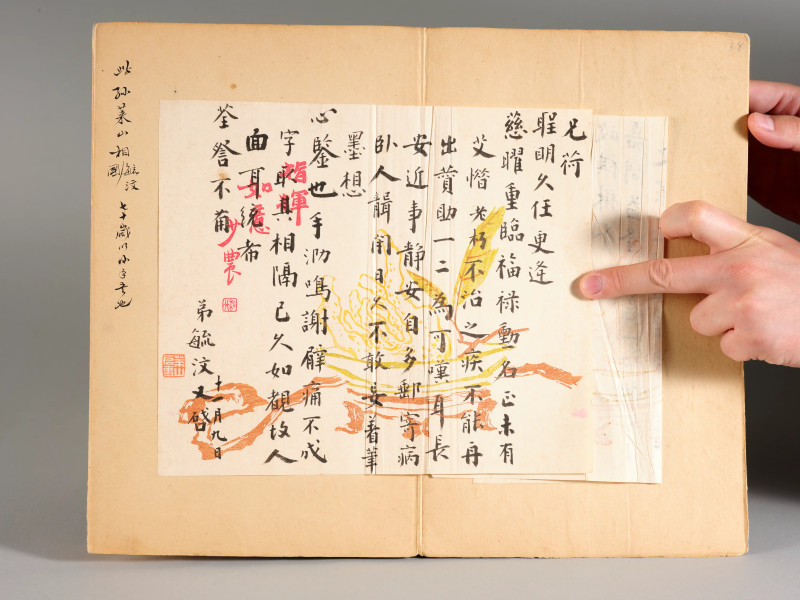 兄荷
聖明久任更逢
慈曜重臨福祿勳名正未有
艾憯老朽不治之疾不能再
出贊助一二為可嘆耳長
安近事靜安自多郵寄病
卧人韻閣日久不敢妄着筆
墨想
心鑒也手泐鳴謝臂痛不成
字取其相隔已久如覩故人
面耳統希
荃詧不備
弟毓汶又啓
十一月九日
指揮
如意
少農
此孫萊山相國毓汶
七十歲以小字